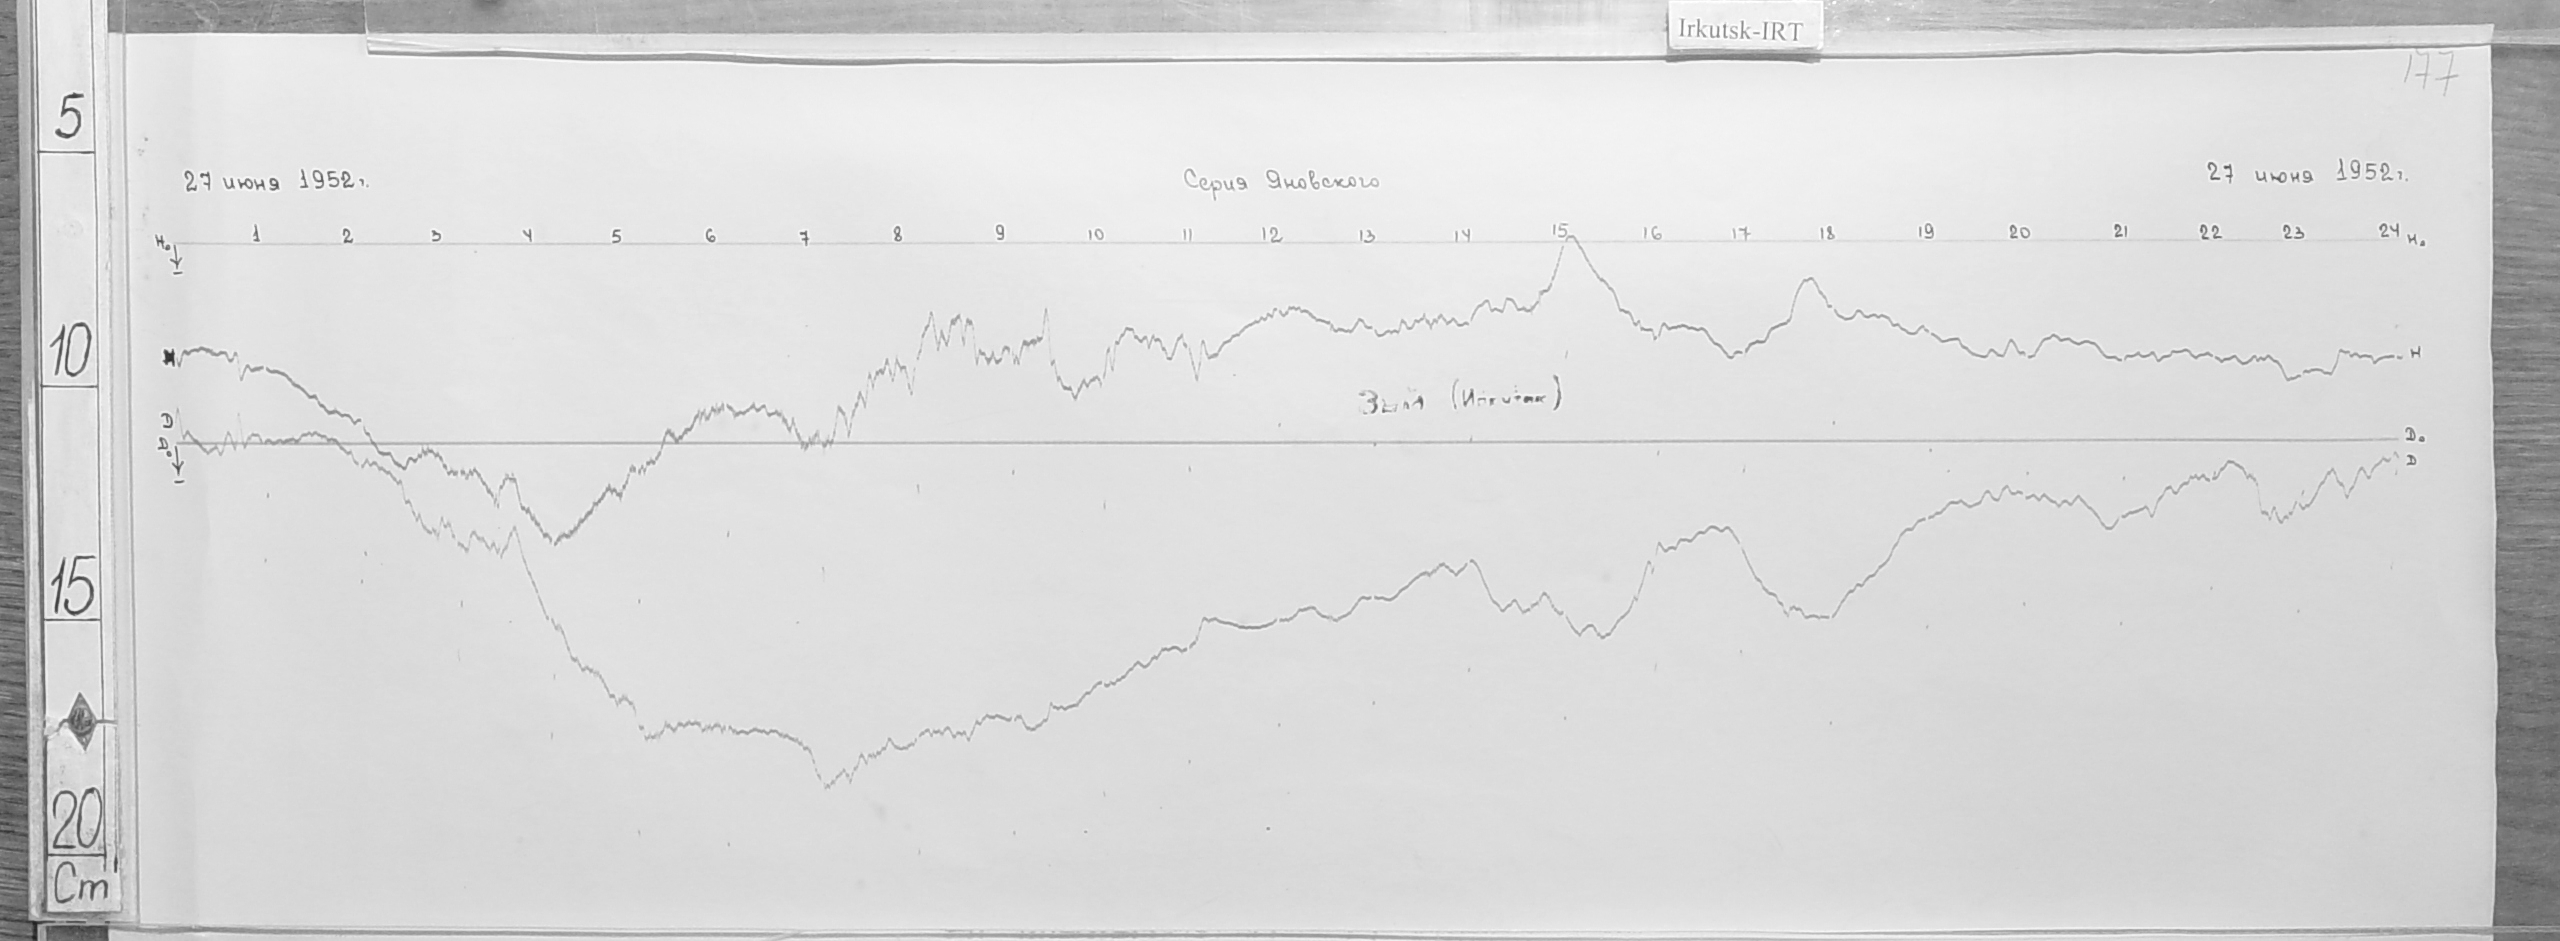 Irkutsk-IRT
177
5
10
15
20
Cm
27 июня 1952 г.
Серия Яновского
27 июня 1952 г.
H₀ 1 2 3 4 5 6 7 8 9 10 11 12 13 14 15 16 17 18 19 20 21 22 23 24 H₀
H H
Зыма (Иркутск)
D
D₀ D₀
D